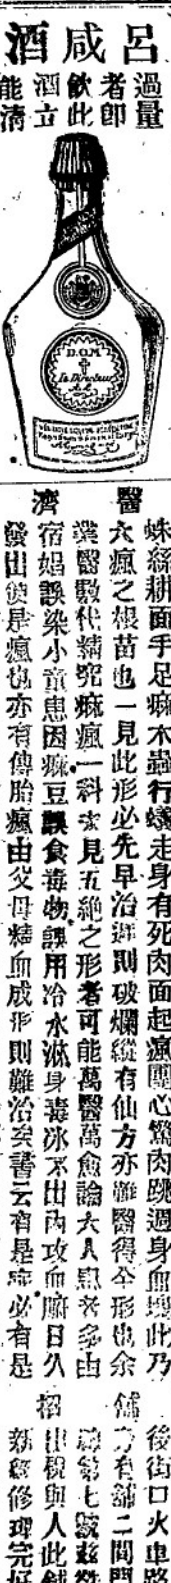 呂咸酒
過量
者即
飲此
酒立
能清
D.O.M.
醫
濟
蛛絲耕面手足痲木蟲行蟻走身有死肉面起瘋團心驚肉跳遍身血塊此乃
大瘋之根苗也一見此形必先早治遲則破爛縱有仙方亦難醫得全形也余
業醫數代精究痲瘋一科未見五絕之形者可能萬醫萬愈論大人患者多由
宿娼誤染小童患因痲豆誤食毒物誤用冷水淋身毒冰不出內攻血腑日久
發出便是瘋也亦有傳胎瘋由父母精血成形則難治矣書云有是症必有是
舖
招
後街口火車路
方有舖二間門
第七號
出稅與人此舖
新修理完好